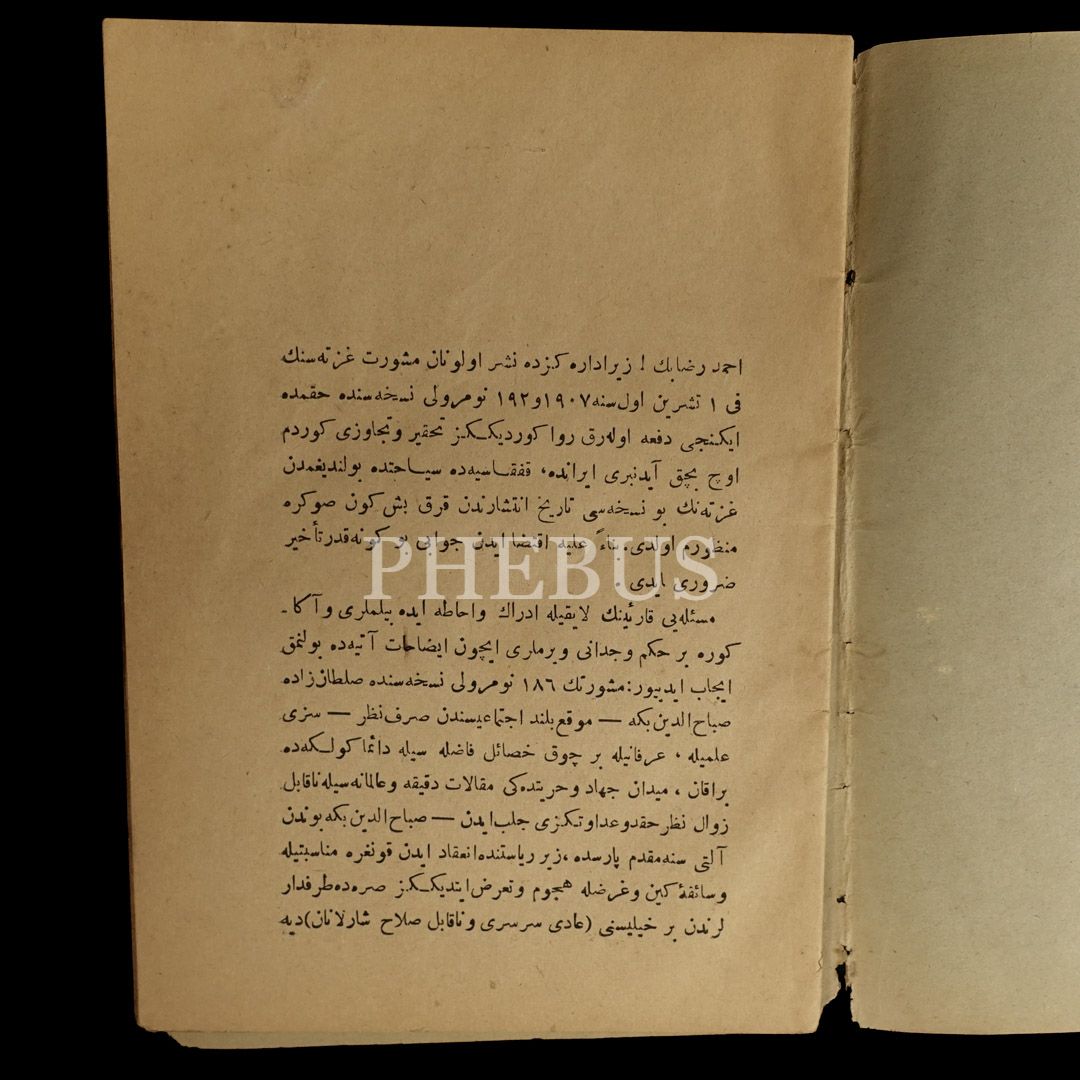 احمد رضا بك ! زير اداره كزده نشر اولونان مشورت غزته‌سنك
فى ١ تشرين اول سنه ١٩٠٧ و ١٩٢ نومرولى نسخه‌سنده حقمده
ايكنجى دفعه اوله‌رق روا كورديككز تحقير وتجاوزى كوردم
اوچ بچق آيدنبرى ايرانده، قفقاسيه‌ده سياحتده بولنديغمدن
غزته‌نك بو نسخه‌سى تاريخ انتشارندن قرق بش كون صوكره
منظورم اولدى. بناءً عليه اقتضا ايدن جوابى بو كونه قدر تأخير
ضرورى ايدى .
مسئله‌يى قارئينك لايقيله ادراك واحاطه ايده بيلملرى و آكا ـ
كوره بر حكم وجدانى ويرملرى ايچون ايضاحات آتيه‌ده بولنمق
ايجاب ايدييور: مشورتك ١٨٦ نومرولى نسخه‌سنده صلطان‌زاده
صباح‌الدين بكه — موقع بلند اجتماعيسندن صرف نظر — سزى
علميله ، عرفانيله بر چوق خصائل فاضله سيله دائما كولكه‌ده
براقان ، ميدان جهاد وحريتده‌كى مقالات دقيقه وعالمانه سيله ناقابل
زوال نظر حقد وعداوتكزى جلب ايدن — صباح‌الدين بكه بوندن
آلتى سنه مقدم پارسده ، زير رياستنده انعقاد ايدن قونغره مناسبتيله
وسائقهٔ كين وغرضله هجوم وتعرض ايتديككز صره‌ده طرفدار
لرندن بر خيليسنى (عادى سرسرى وناقابل صلاح شارلانان) ديه
PHEBUS